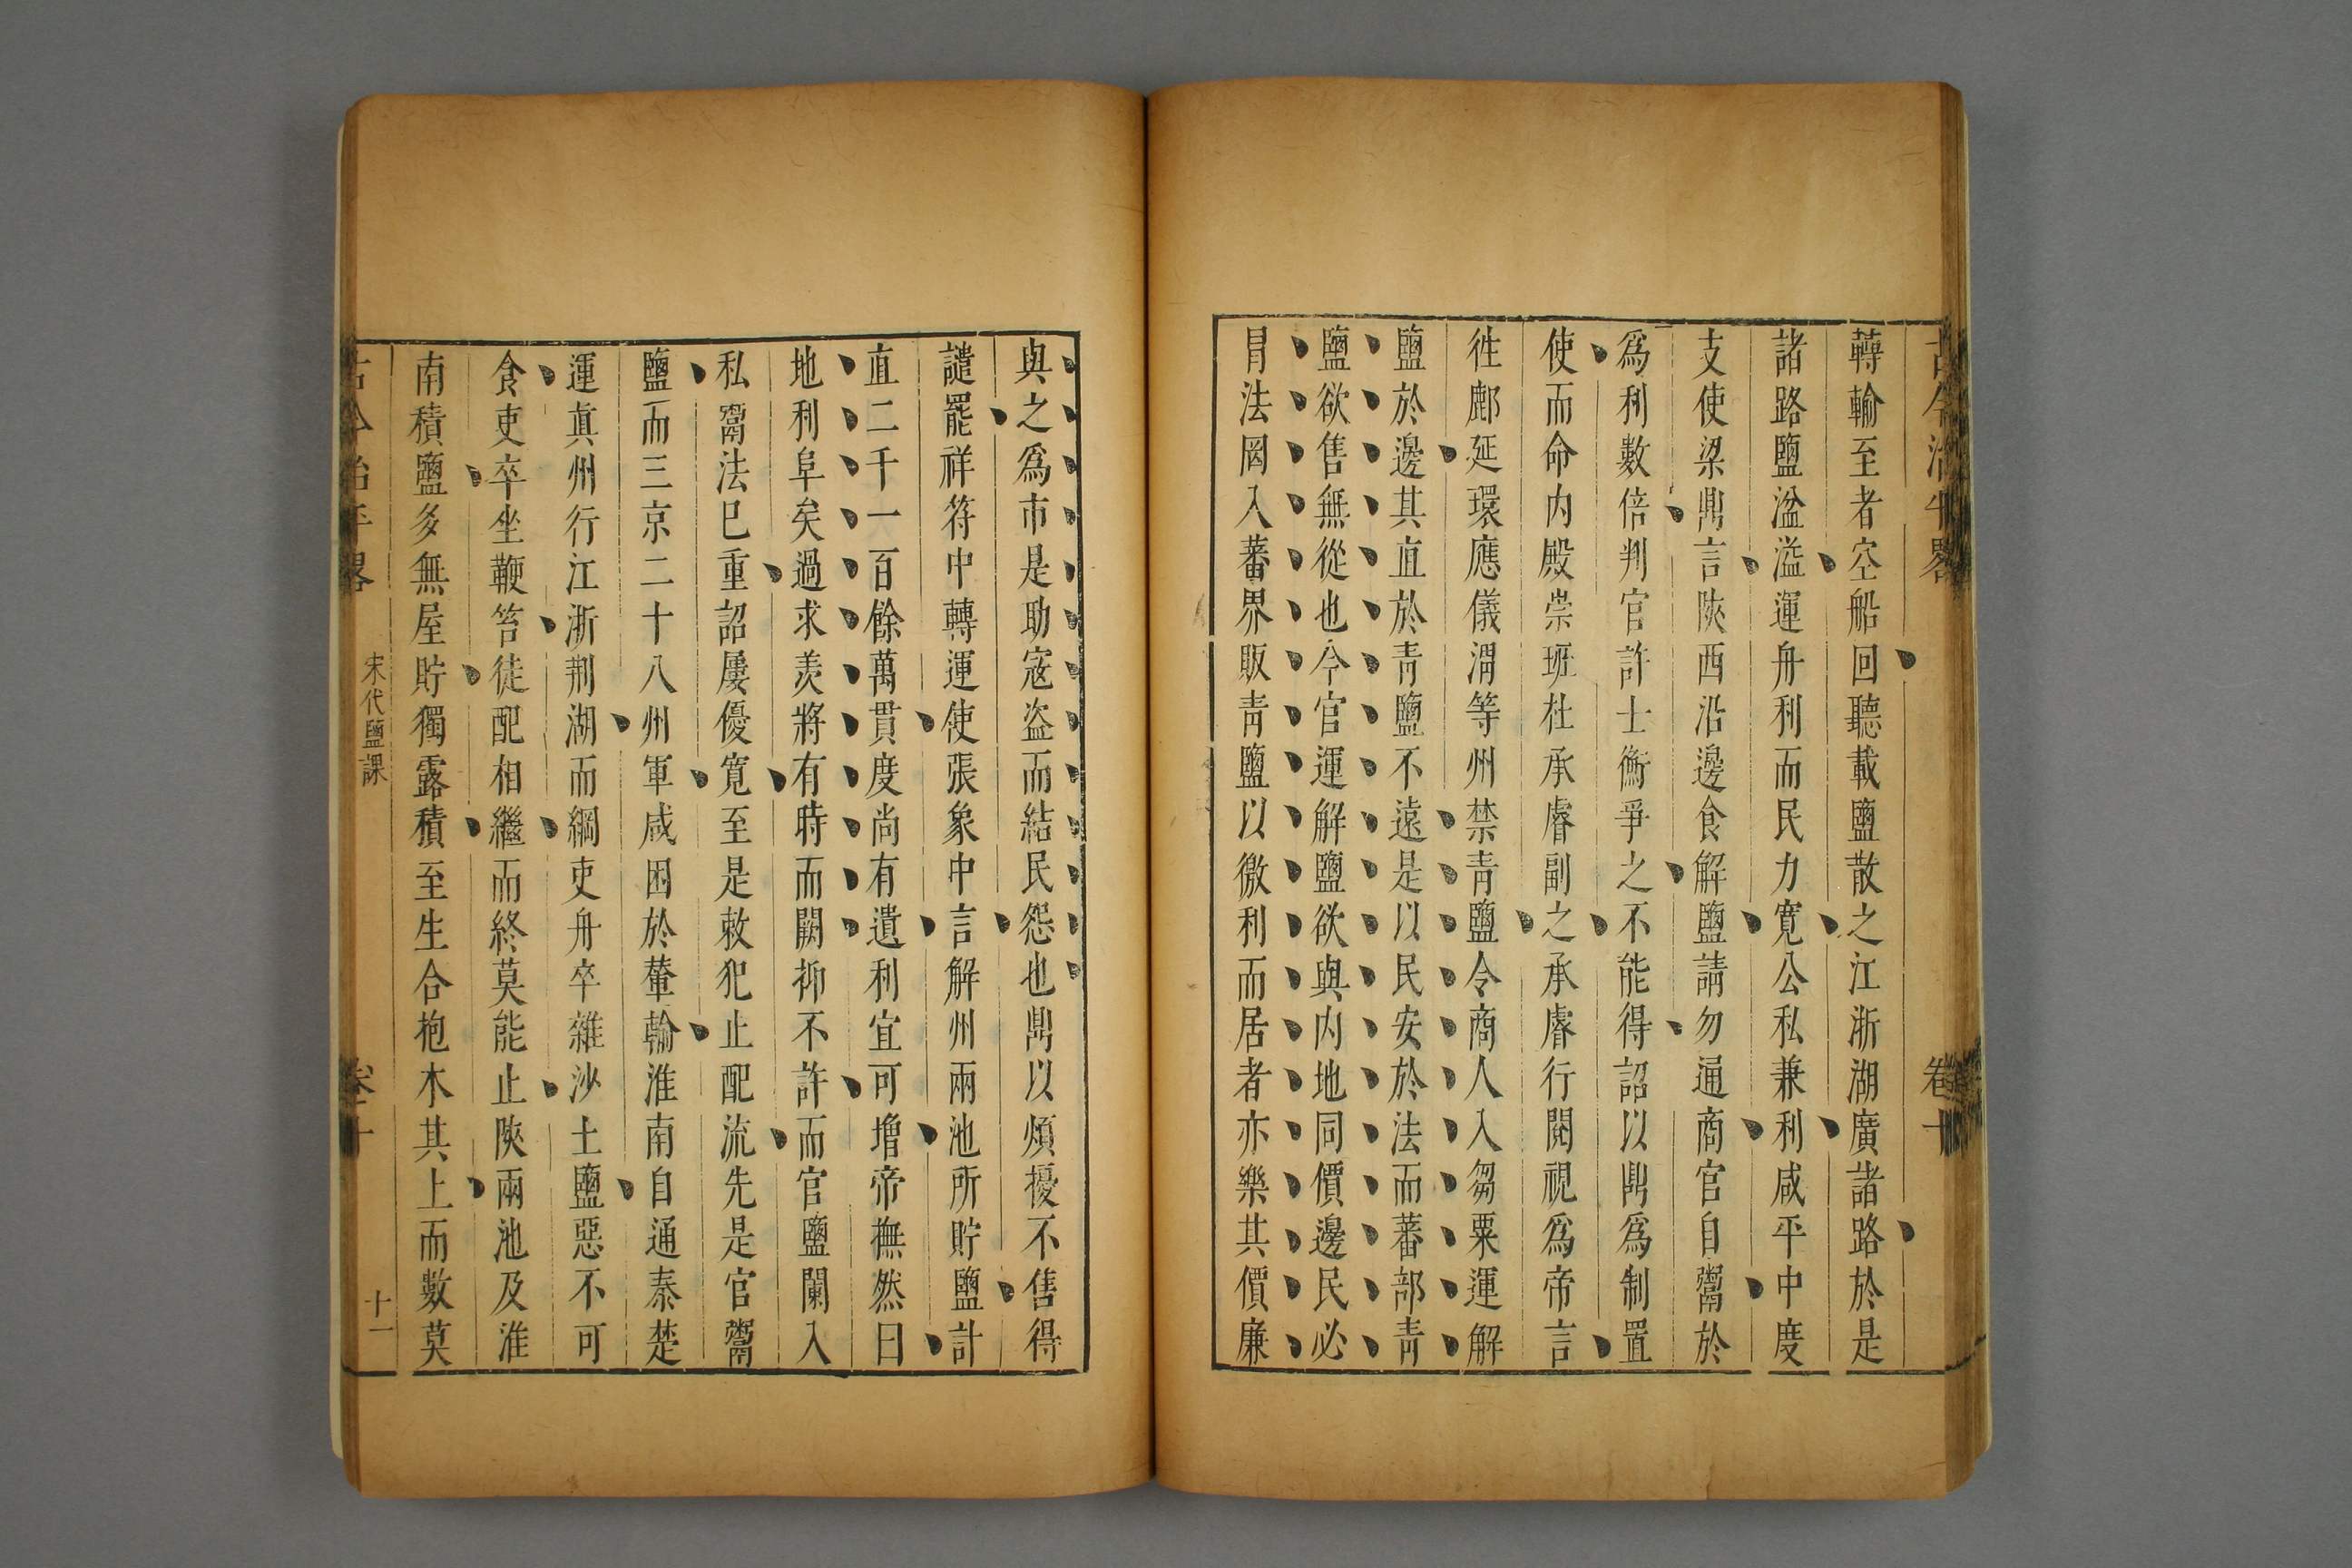 古今治平畧
卷十
轉輸至者空船回聽載鹽散之江浙湖廣諸路於是
諸路鹽溢溢運舟利而民力寬公私兼利咸平中度
支使梁鼎言陜西沿邊食解鹽請勿通商官自鬻於
爲利數倍判官許士衡爭之不能得詔以鼎爲制置
使而命内殿崇班杜承睿副之承睿行閱視爲帝言
徃鄜延環應儀渭等州禁青鹽令商人入芻粟運解
鹽於邊其直於青鹽不遠是以民安於法而蕃部青
鹽欲售無從也今官運解鹽欲與内地同價邊民必
冐法罔入蕃界販青鹽以徼利而居者亦樂其價廉
與之爲市是助寇盗而結民怨也鼎以煩擾不售得
譴罷祥符中轉運使張象中言解州兩池所貯鹽計
直二千一百餘萬貫度尚有遺利宜可增帝撫然曰
地利阜矣過求羨將有時而闕抑不許而官鹽闌入
私鬻法已重詔屢優寛至是敕犯止配流先是官鬻
鹽而三京二十八州軍咸困於輦輸淮南自通泰楚
運眞州行江浙荆湖而綱吏舟卒雜沙土鹽惡不可
食吏卒坐鞭笞徒配相繼而終莫能止陜兩池及淮
南積鹽多無屋貯獨露積至生合抱木其上而數莫
古今治平畧
宋代鹽課
卷十
十一